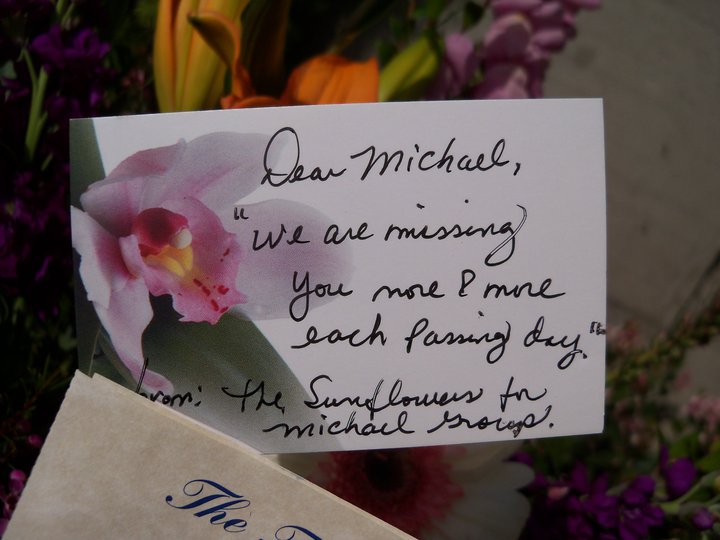 Dear Michael,
"We are missing
you more & more
each passing day."
from: The Sunflowers for
michael group.
The